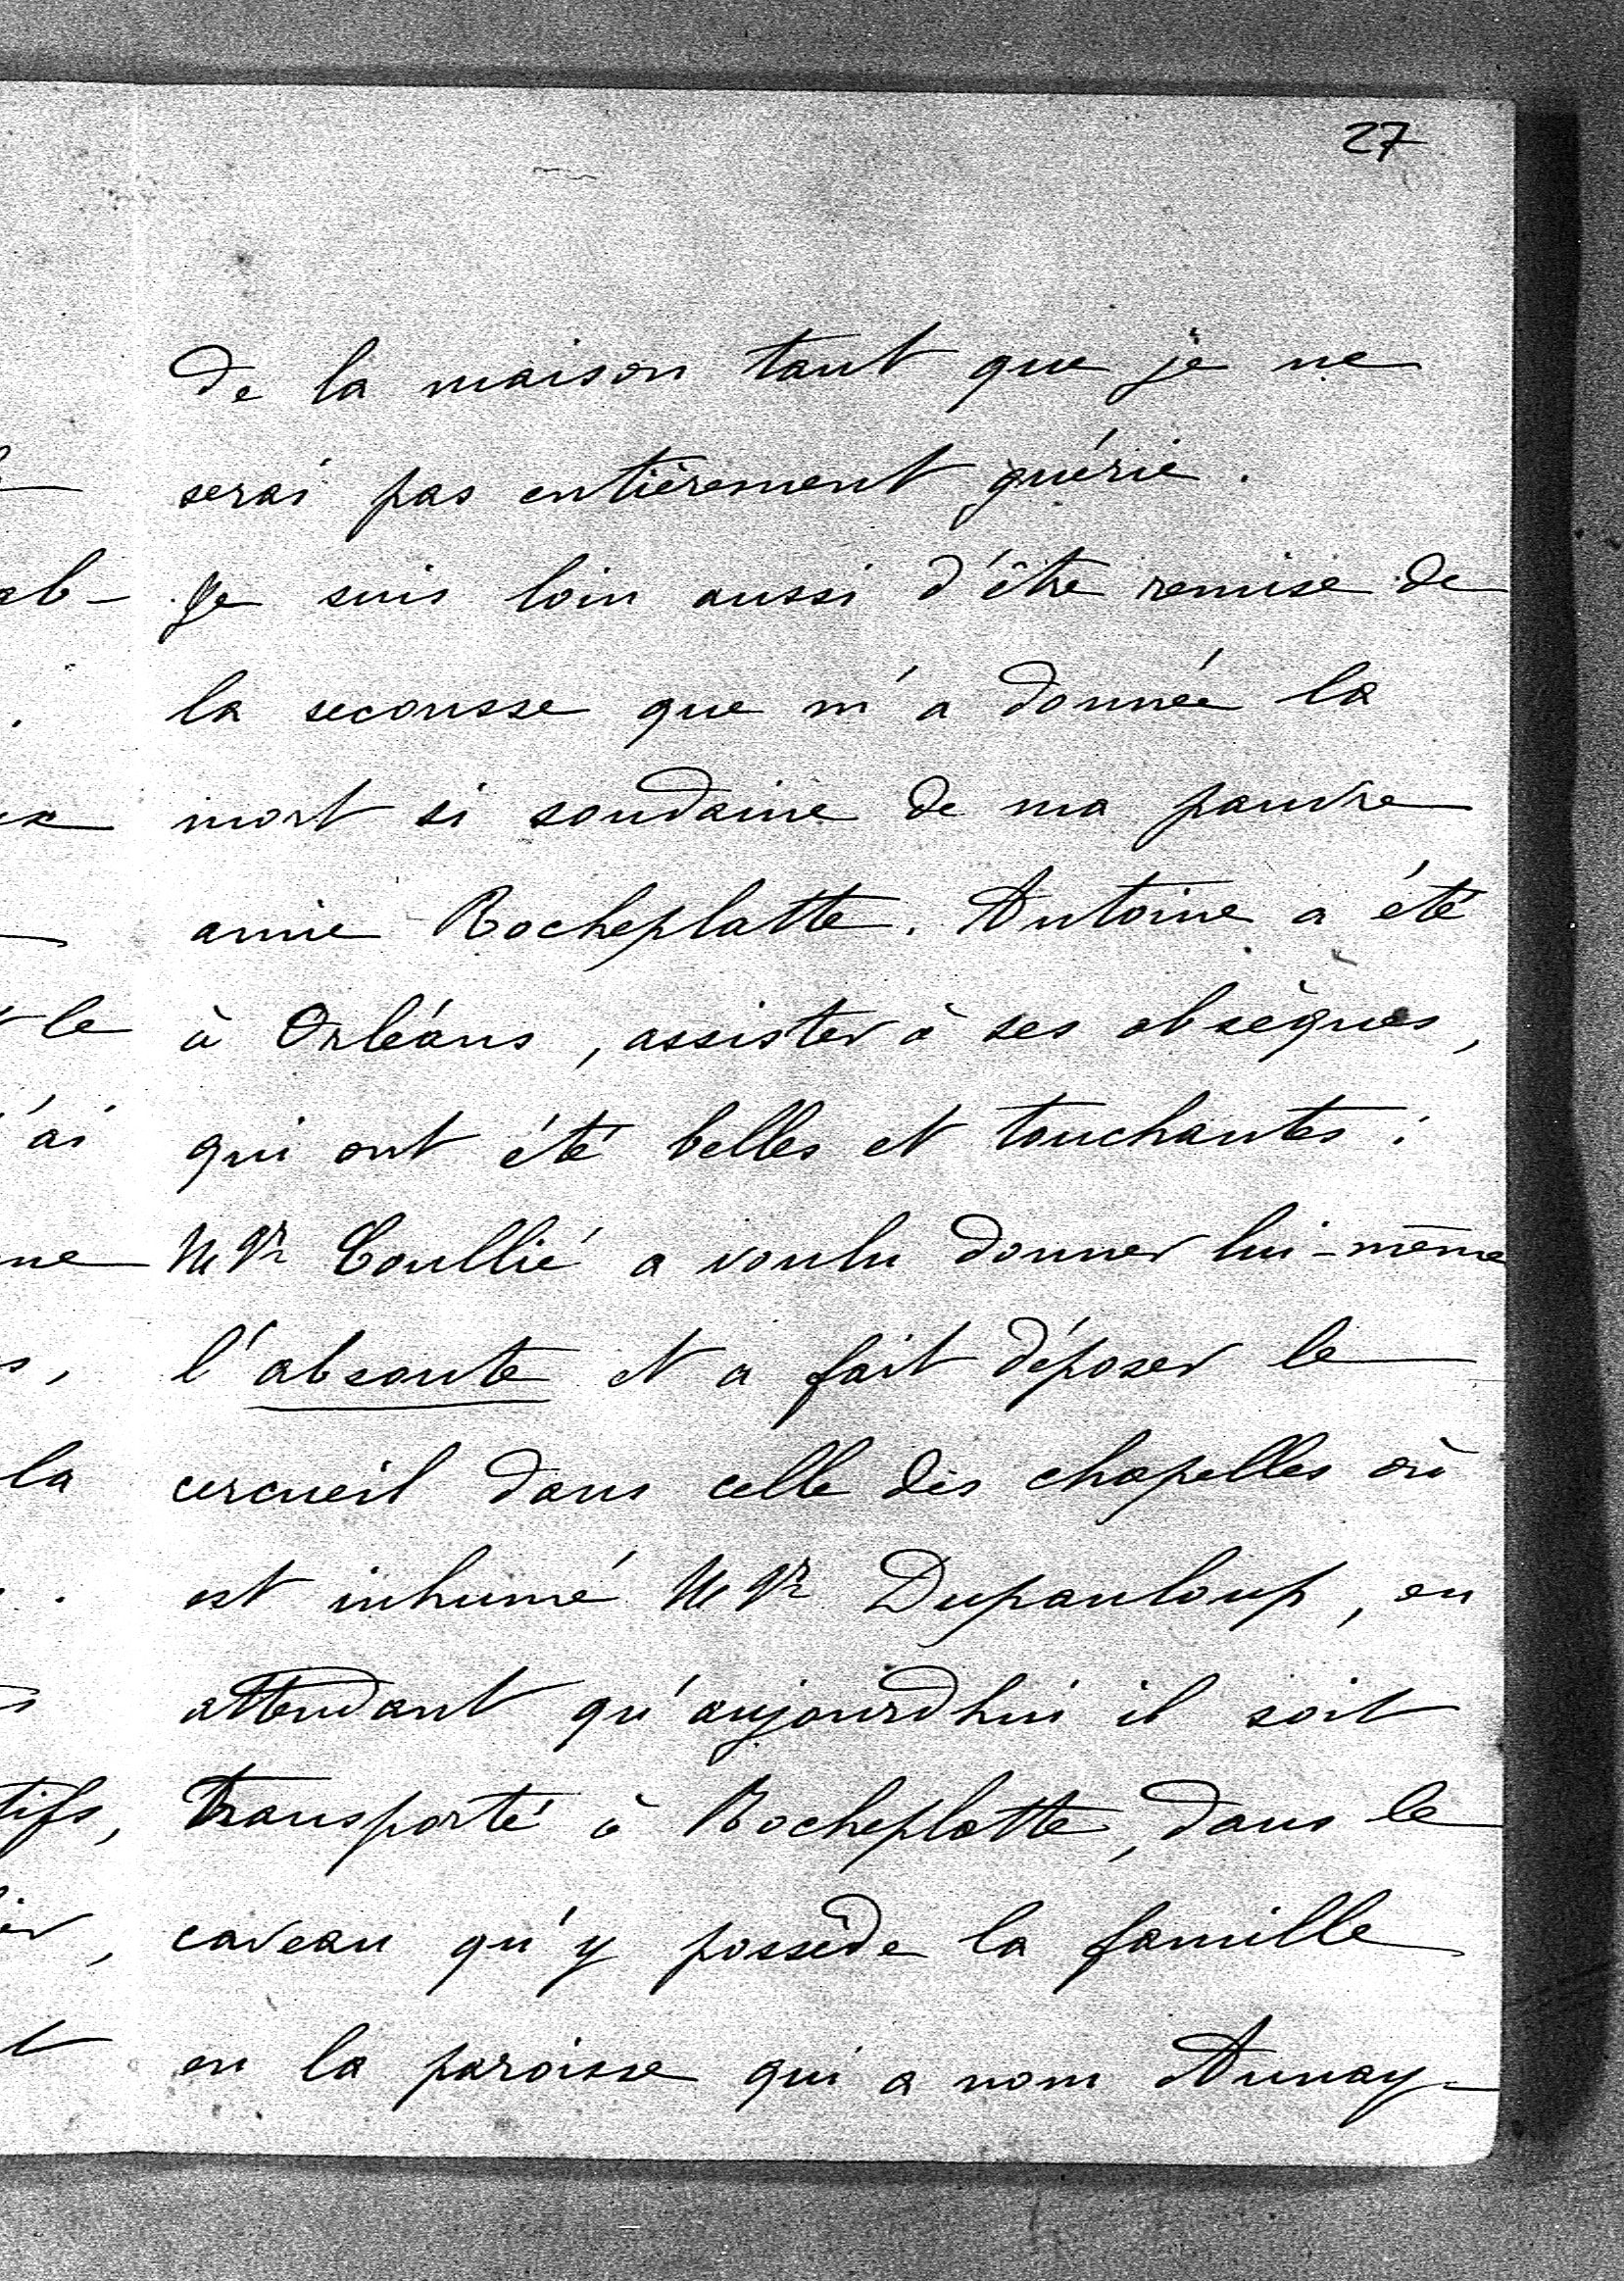 27
de la maison tant que je ne
serai pas entièrement guérie.
Je suis loin aussi d'être remise de
la secousse que m'a donnée la
mort si soudaine de ma pauvre
amie Rocheplatte. Antoine a été
à Orléans, assister à ses obsèques,
qui ont été belles et touchantes :
Mgr Coullié a voulu donner lui-même
l'absoute et a fait déposer le
cercueil dans celle des chapelles où
est inhumé Mgr Dupanloup, en
attendant qu'aujourdhui il soit
transporté à Rocheplatte, dans le
caveau qu'y possède la famille
en la paroisse qui a nom Aunay-